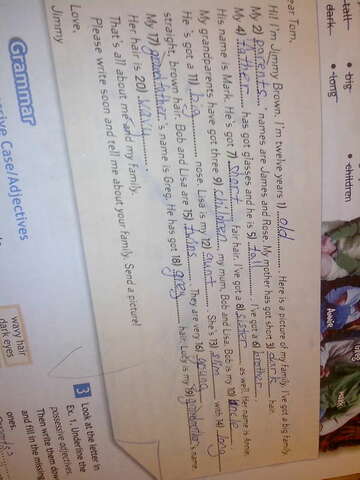 tall
big
dark
long
children
ear Tom,
Hi! I'm Jimmy Brown. I'm twelve years 1) old. Here is a picture of my family. I've got a big family.
My 2) parents' names are James and Rose. My mother has got short 3) dark hair.
My 4) father has got glasses and he is 5) tall. I've got a 6) brother.
His name is Mark. He's got 7) short fair hair. I've got a 8) sister as well. Her name is Annie.
My grandparents have got three 9) children, my mum, Bob and Lisa. Bob is my 10) uncle.
He's got a 11) big nose. Lisa is my 12) aunt. She's 13) slim with 14) long
straight, brown hair. Bob and Lisa are 15) twins. They are very 16)
My 17) grandfather's name is Greg. He has got 18) grey hair. Lady is my 19) grandmother's name.
Her hair is 20) wavy.
That's all about me and my family.
Please write soon and tell me about your family. Send a picture!
Love,
Jimmy
Grammar
Case/Adjectives
wavy hair
dark eyes
3 Look at the letter in
Ex. 1. Underline the
possessive adjectives.
Then write them down
and fill in the missing
ones.